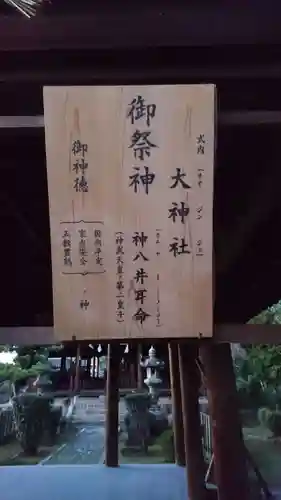 式内
大神社
御祭神
神八井耳命
(神武天皇の第二皇子)
御神徳
国内平定
家内安全
五穀豊穣
神